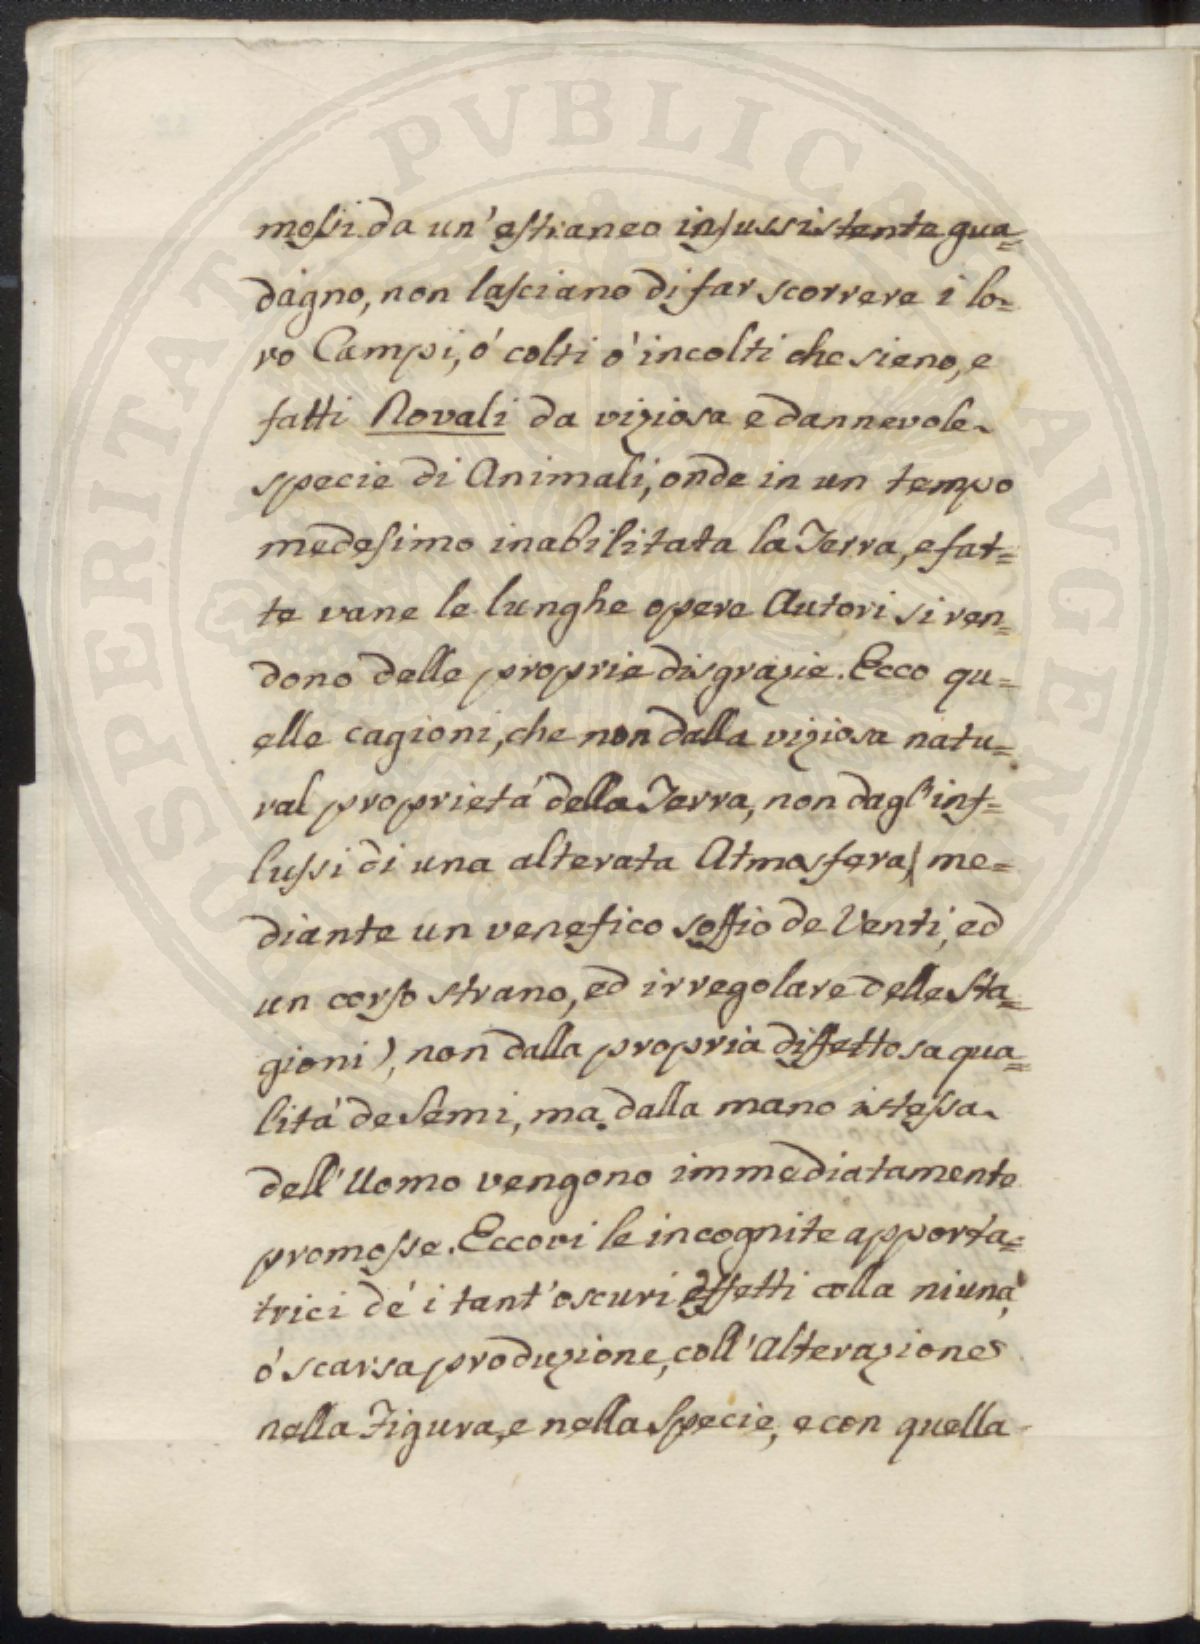 mossi da un' estraneo insussistente gua=
dagno, non lasciano di far scorrere i lo=
ro Campi, ó colti ó incolti che sieno, e
fatti Novali da viziosa e dannevole
specie di Animali, onde in un tempo
medesimo inabilitata la Terra, e fat=
te vane le lunghe opere Autori si ren=
dono delle proprie disgrazie. Ecco qu=
elle cagioni, che non dalla viziosa natu=
ral proprietá della Terra, non dagl' inf=
lussi di una alterata Atmosfera ( me=
diante un venefico soffio de Venti, ed
un corso strano, ed irregolare delle Sta=
gioni ), non dalla propria diffettosa qua=
litá de Semi, ma dalla mano istessa
dell' Uomo vengono immediatamente
promosse. Eccovi le incognite apporta=
trici dé i tant' oscuri effetti colla niuna,
ó scarsa produzione, coll' Alterazione
nella Figura, e nella Specie, e con quella
PVBLICAE
AVGENDAE